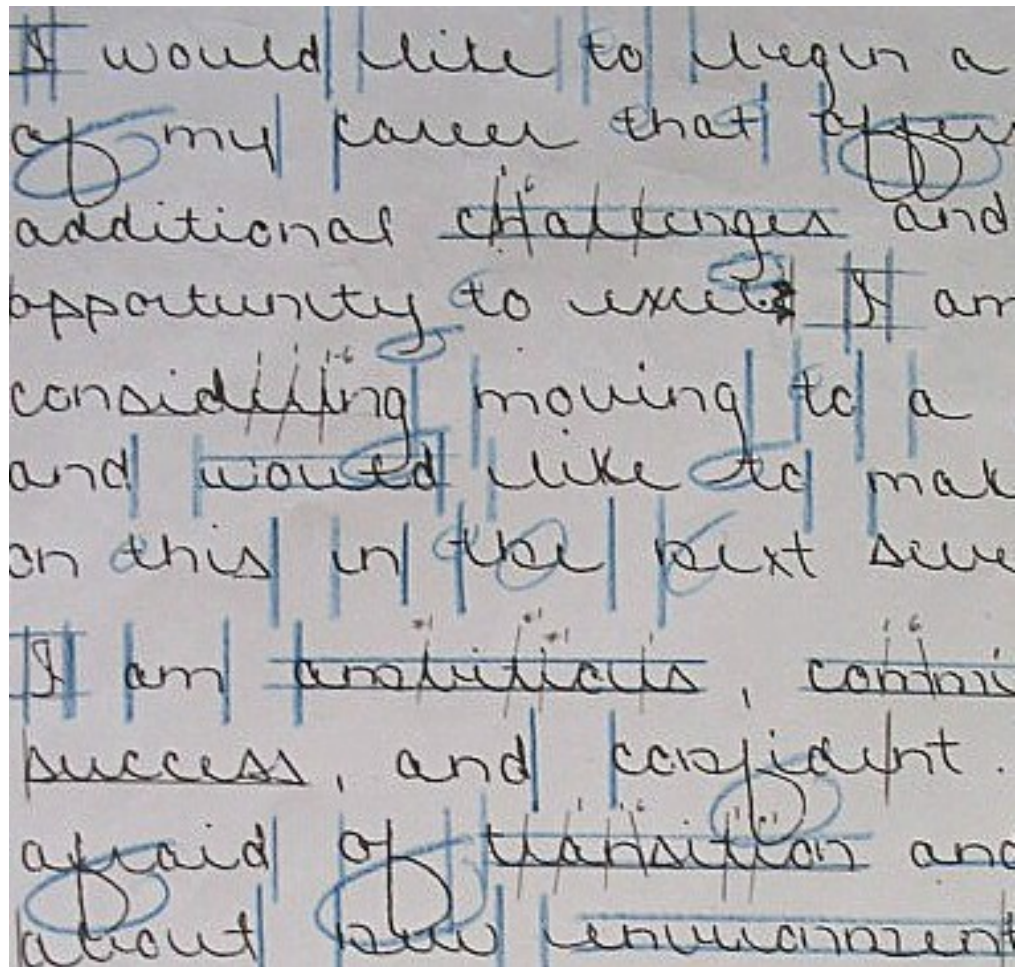 I would like to begin a
of my career that offers
additional challenges and
opportunity to excel. I am
considering moving to a
and would like to mak
on this in the next seve
I am ambitious, commi
success, and confident.
afraid of transition and
about new environment